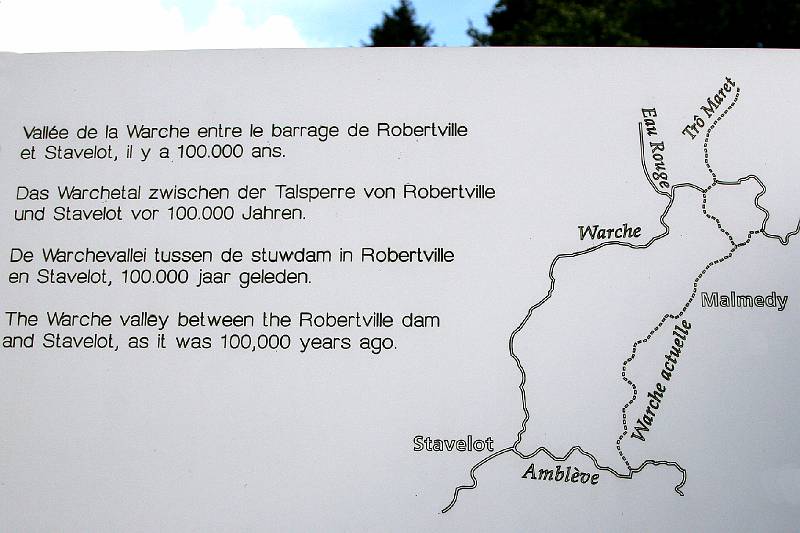 Vallée de la Warche entre le barrage de Robertville
et Stavelot, il y a 100.000 ans.
Das Warchetal zwischen der Talsperre von Robertville
und Stavelot vor 100.000 Jahren.
De Warchevallei tussen de stuwdam in Robertville
en Stavelot, 100.000 jaar geleden.
The Warche valley between the Robertville dam
and Stavelot, as it was 100,000 years ago.
Eau Rouge
Trô Maret
Warche
Malmedy
Warche actuelle
Stavelot
Amblève